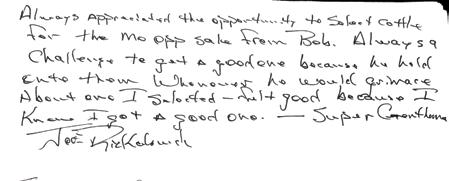 Always Appreciated the opportunity to Select cattle
for the Mo Opp sale from Bob. Always a
Challenge to get a good one because he held
onto them Whenever he would grimace
About one I Selected - felt good because I
Know I got a good one. - Super Gentleman
Joe